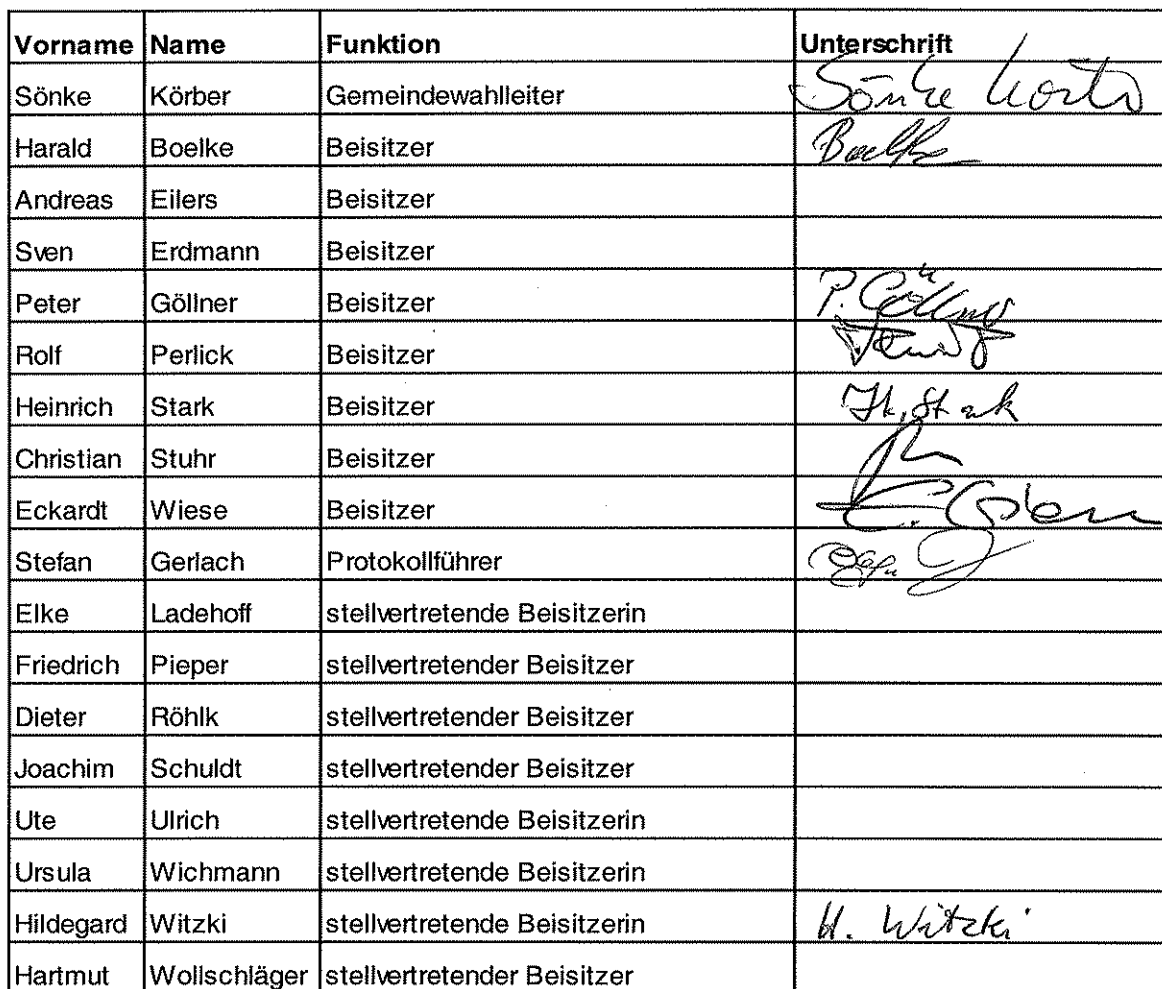 Vorname Name Funktion Unterschrift
Sönke Körber Gemeindewahlleiter Sönke
Harald Boelke Beisitzer Boelke
Andreas Eilers Beisitzer
Sven Erdmann Beisitzer
Peter Göllner Beisitzer P. Göllner
Rolf Perlick Beisitzer
Heinrich Stark Beisitzer H. Stark
Christian Stuhr Beisitzer
Eckardt Wiese Beisitzer
Stefan Gerlach Protokollführer
Elke Ladehoff stellvertretende Beisitzerin
Friedrich Pieper stellvertretender Beisitzer
Dieter Röhlk stellvertretender Beisitzer
Joachim Schuldt stellvertretender Beisitzer
Ute Ulrich stellvertretende Beisitzerin
Ursula Wichmann stellvertretende Beisitzerin
Hildegard Witzki stellvertretende Beisitzerin H. Witzki
Hartmut Wollschläger stellvertretender Beisitzer